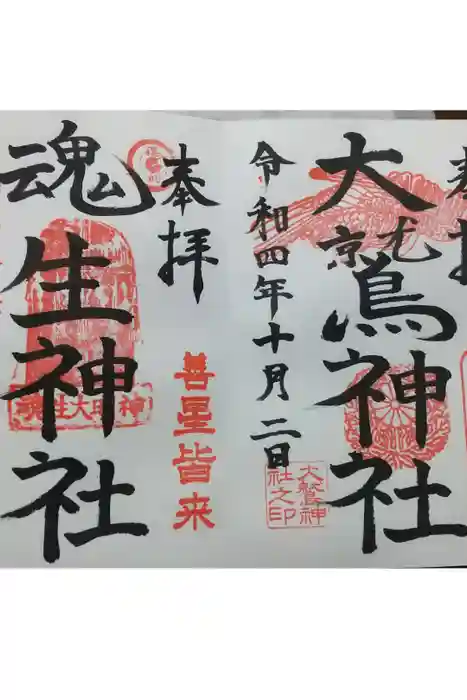 奉拝
大鷲神社
令和四年十月二日
大鷲神
社之印
奉拝
善星皆来
魂生神社
魂生大明神